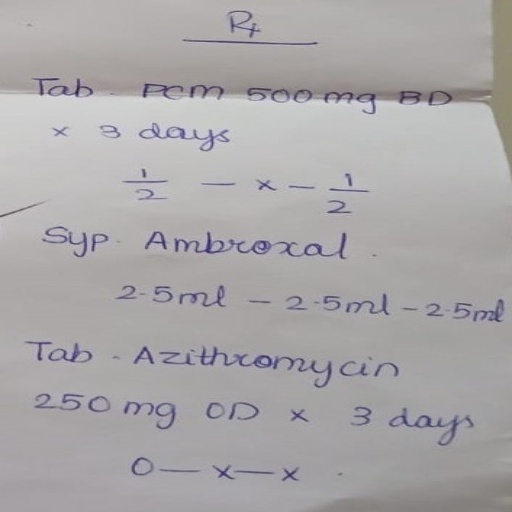 Rx
Tab. PCM 500mg BD
x 3 days
1/2 - x - 1/2
Syp. Ambroxal.
2.5ml - 2.5ml - 2.5ml
Tab - Azithromycin
250 mg OD x 3 days
0 - x - x .